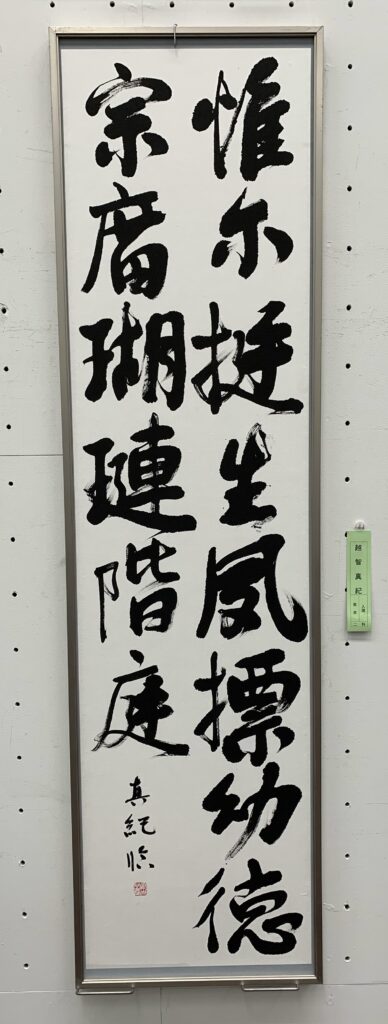 惟尓挺生夙摽幼徳
宗廟瑚璉階庭
真紀臨
越智真紀